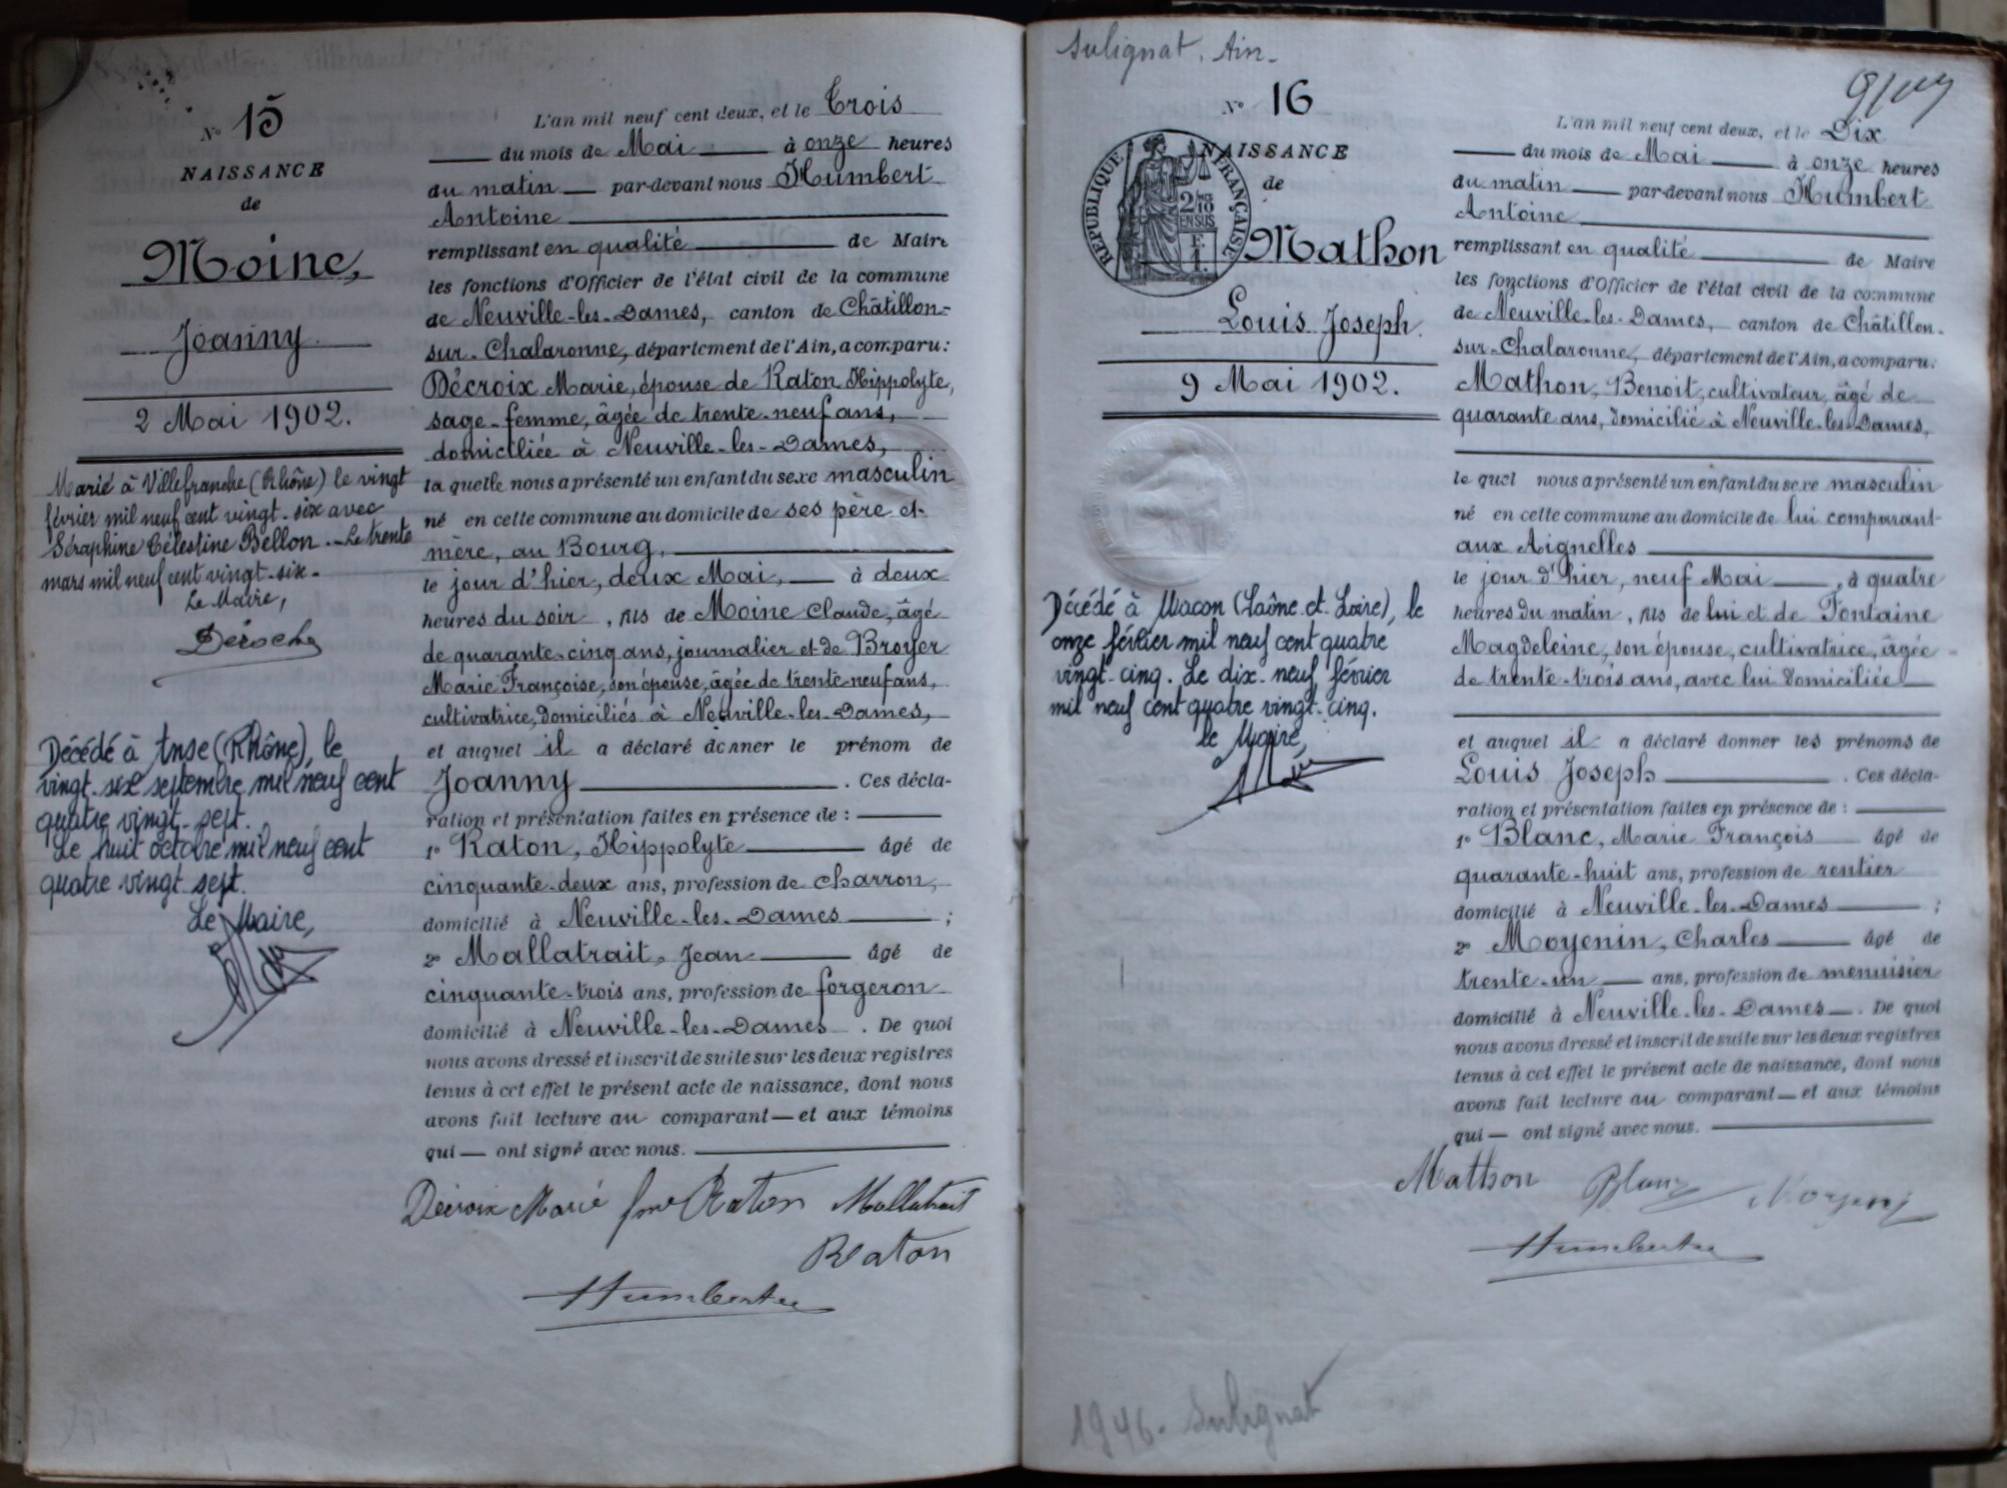 Nº 15
NAISSANCE
de
Moine,
Joanny
2 Mai 1902.
Marié à Villefranche (Rhône) le vingt
février mil neuf cent vingt-six avec
Séraphine Célestine Bellon. - Le trente
mars mil neuf cent vingt-six.
Le Maire,
Deroche
Décédé à Anse (Rhône), le
vingt-six septembre mil neuf cent
quatre vingt-sept.
Le huit octobre mil neuf cent
quatre vingt sept.
Le Maire,
L'an mil neuf cent deux, et le Trois
du mois de Mai à onze heures
du matin par-devant nous Humbert
Antoine
remplissant en qualité de Maire
les fonctions d'Officier de l'état civil de la commune
de Neuville-les-Dames, canton de Châtillon-
sur-Chalaronne, département de l'Ain, a comparu:
Décroix Marie, épouse de Raton Hippolyte,
sage-femme, âgée de trente-neuf ans,
domiciliée à Neuville-les-Dames,
la quelle nous a présenté un enfant du sexe masculin
né en cette commune au domicile de ses père et
mère, au Bourg,
le jour d'hier, deux Mai, à deux
heures du soir, fils de Moine Claude, âgé
de quarante-cinq ans, journalier et de Broyer
Marie Françoise, son épouse, âgée de trente-neuf ans,
cultivatrice, domiciliés à Neuville-les-Dames,
et auquel il a déclaré donner le prénom de
Joanny . Ces décla-
ration et présentation faites en présence de :
1º Raton, Hippolyte âgé de
cinquante-deux ans, profession de charron,
domicilié à Neuville-les-Dames ;
2º Mallatrait, Jean âgé de
cinquante-trois ans, profession de forgeron
domicilié à Neuville-les-Dames . De quoi
nous avons dressé et inscrit de suite sur les deux registres
tenus à cet effet le présent acte de naissance, dont nous
avons fait lecture au comparant — et aux témoins
qui — ont signé avec nous.
Décroix Marie fme Raton Mallatrait
Raton
Humbert
Sulignat. Ain.
Nº 16
RÉPUBLIQUE FRANÇAISE
2/10 EN SUS
NAISSANCE
de
Mathon
Louis Joseph.
9 Mai 1902.
Décédé à Macon (Saône et Loire), le
onze février mil neuf cent quatre
vingt-cinq. Le dix-neuf février
mil neuf cent quatre vingt-cinq.
Le Maire,
L'an mil neuf cent deux, et le Dix
du mois de Mai à onze heures
du matin par-devant nous Humbert
Antoine
remplissant en qualité de Maire
les fonctions d'Officier de l'état civil de la commune
de Neuville-les-Dames, canton de Châtillon-
sur-Chalaronne, département de l'Ain, a comparu:
Mathon, Benoit, cultivateur, âgé de
quarante ans, domicilié à Neuville-les-Dames,
le quel nous a présenté un enfant du sexe masculin
né en cette commune au domicile de lui comparant
aux Aignelles
le jour d'hier, neuf Mai , à quatre
heures du matin, fils de lui et de Fontaine
Magdeleine, son épouse, cultivatrice, âgée
de trente-trois ans, avec lui domiciliée
et auquel il a déclaré donner les prénoms de
Louis Joseph . Ces décla-
ration et présentation faites en présence de :
1º Blanc, Marie François âgé de
quarante-huit ans, profession de rentier
domicilié à Neuville-les-Dames ;
2º Moyenin, Charles âgé de
trente-un ans, profession de menuisier
domicilié à Neuville-les-Dames . De quoi
nous avons dressé et inscrit de suite sur les deux registres
tenus à cet effet le présent acte de naissance, dont nous
avons fait lecture au comparant — et aux témoins
qui — ont signé avec nous.
Mathon Blanc Moyenin
Humbert
1946. Sulignat